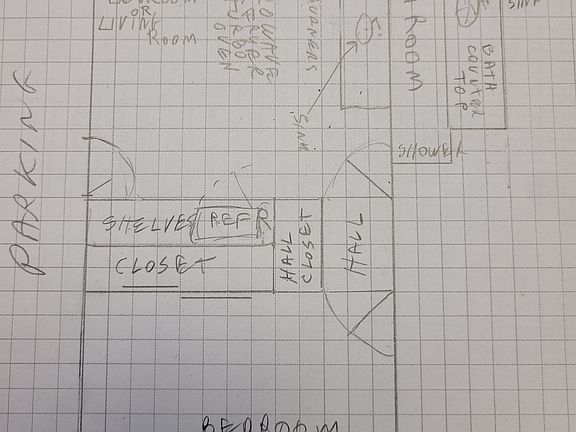 OR
LIVING
ROOM
BURNERS
OVEN
SINK
ROOM
BATH
COUNTER
TOP
SINK
SHOWER
PARKING
SHELVES
REF
CLOSET
HALL
CLOSET
HALL
BEDROOM